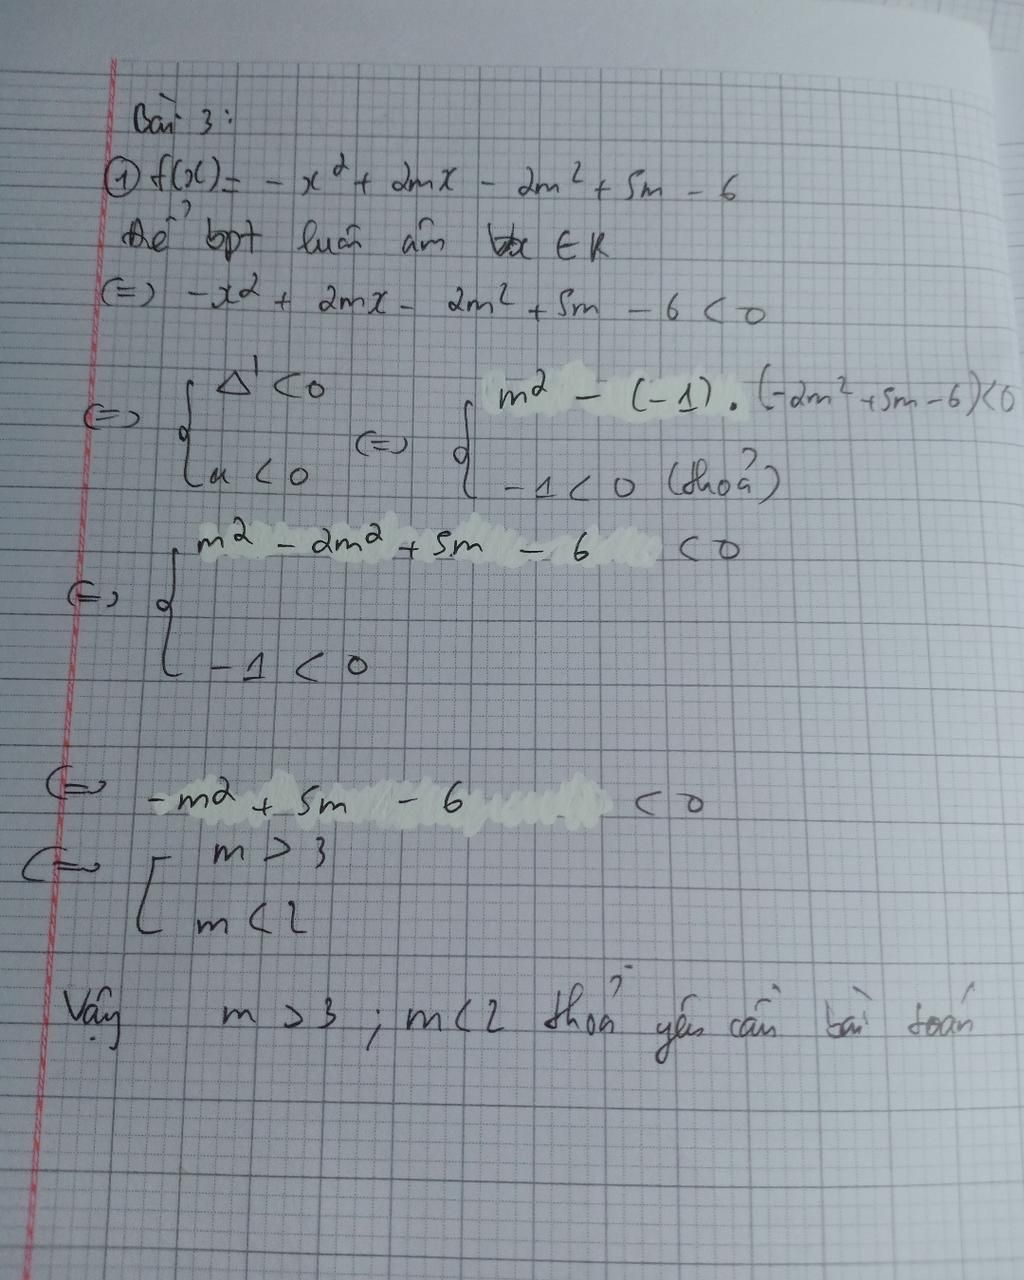 Bài 3:
① f(x) = - x² + 2mx - 2m² + 5m - 6
Để bpt luôn âm ∀x ∈ R
(=) -x² + 2mx - 2m² + 5m - 6 < 0
(=) { Δ' < 0 (=) { m² - (-1) . (-2m² + 5m - 6) < 0
a < 0 -1 < 0 (thoả)
(=) { m² - 2m² + 5m - 6 < 0
-1 < 0
(=) -m² + 5m - 6 < 0
(=) [ m > 3
m < 2
Vậy m > 3 ; m < 2 thoả yêu cầu bài toán